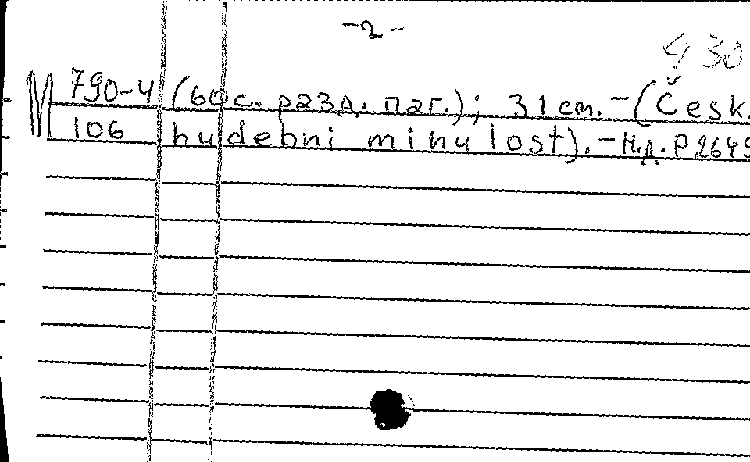 -2-
930
М 790-4 (60 с. разд. паг.); 31 cm. - (Česk.
106 hudebni minulost). - Н.д. Р2649